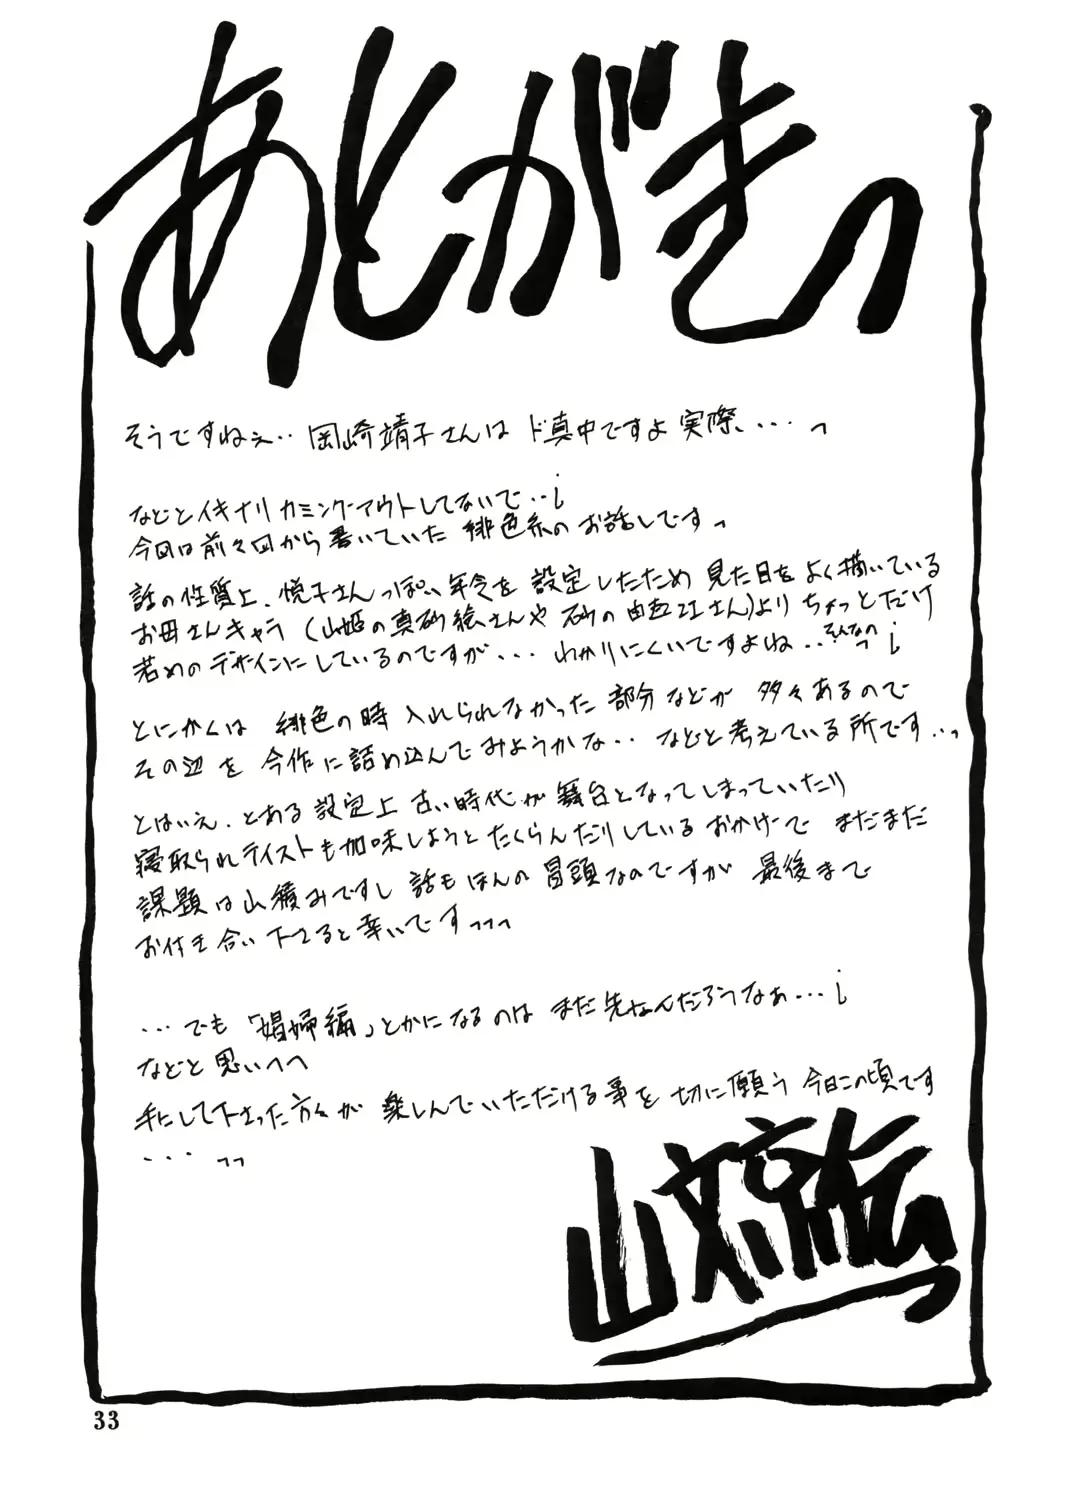 あとがきっ
そうですねぇ‥岡崎靖子さんは ド真中ですよ実際、‥‥っ
などとイキナリ カミングアウトしてないで‥¡
今回は前々回から書いていた 緋色系のお話しですっ
話の性質上、悦子さんっぽい年令を 設定したため 見た目をよく描いている
お母さんキャラ(山姫の真砂絵さんや 砂の由利江さん)より ちょっとだけ
若めのデザインにしているのですが‥‥ わかりにくいですよね‥そんなのっ¡
とにかくは 緋色の時 入れられなかった 部分などが 多々あるので
その辺を 今作に詰め込んでみようかな‥ などと考えている所です‥っ
とはいえ、とある設定上 古い時代が舞台となってしまっていたり
寝取られテイストも加味しようとたくらんだりしているおかげで まだまだ
課題は山積みですし 話もほんの 冒頭なのですが 最後まで
お付き合い下さると幸いですっっっ
‥‥でも「娼婦編」とかになるのは まだ先なんだろうなぁ‥‥¡
などと思いつつ
手にして下さった方々が 楽しんでいただける事を 切に願う 今日この頃です
‥‥っっ
山文京伝
33